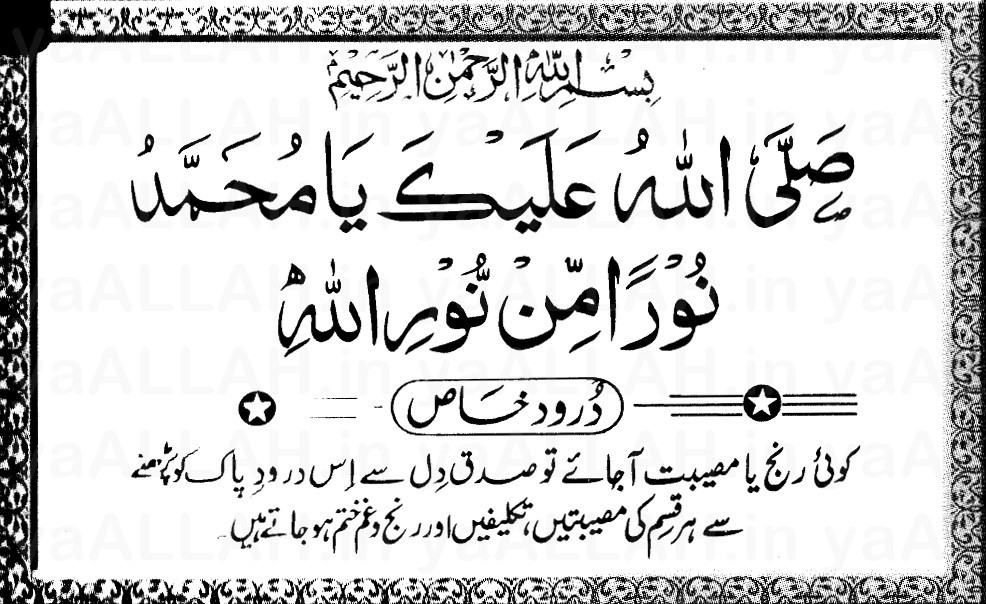 بِسْمِ اللهِ الرَّحْمٰنِ الرَّحِيْمِ
صَلَّى اللهُ عَلَيْكَ يَا مُحَمَّدُ
نُوْرًا مِّنْ نُّوْرِ اللهِ
دُرود خاص
کوئی رنج یا مصیبت آجائے تو صدقِ دِل سے اِس درودِ پاک کو پڑھنے
سے ہر قسم کی مصیبتیں، تکلیفیں اور رنج و غم ختم ہو جاتے ہیں۔
yaALLAH.in